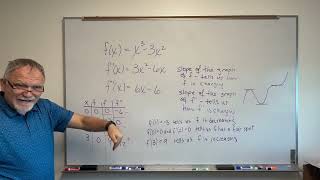 f(x) = x³ - 3x²
f'(x) = 3x² - 6x
f''(x) = 6x - 6
slope of the graph
of f - tells us
how f is changing
slope of the graph
of f' tells us
how f' is
x f f' f''
0 0 0 -6
3 0
tells us f is decreasing
tells us f has a flat spot
f'(3) = 9 tells us f is increasing